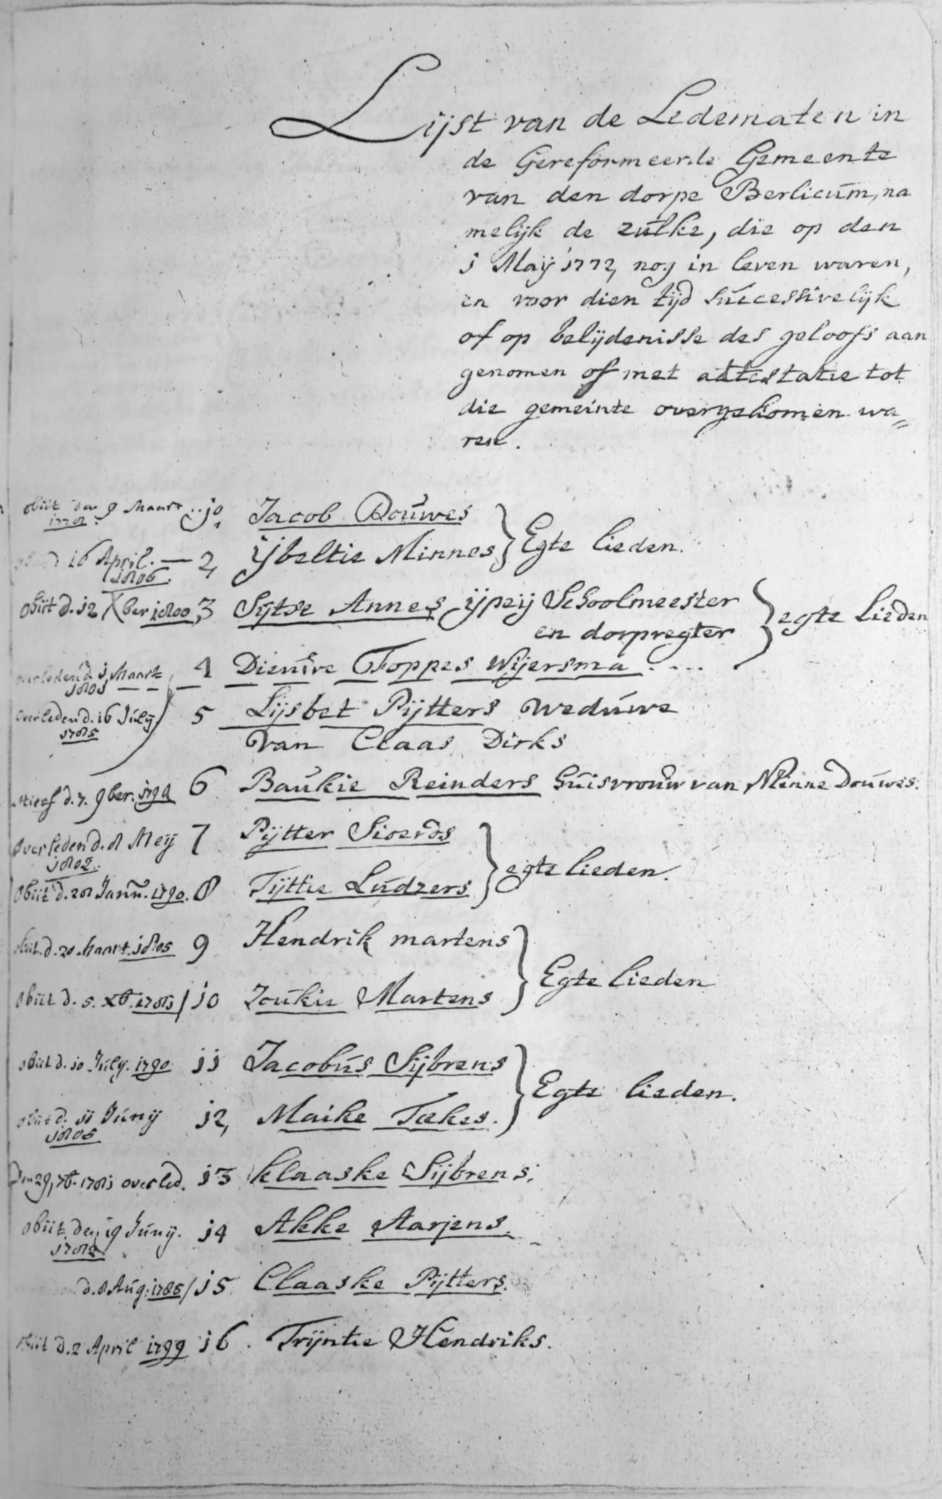 Lijst van de Ledematen in
de Gereformeerde Gemeente
van den dorpe Berlicum, na
melijk de zulke, die op den
1 Maÿ 1772, nog in leven waren,
en voor dien tijd successivelijk
of op belijdenisse des geloofs aan
genomen of met attestatie tot
die gemeinte overgekomen wa=
ren.
obiit den 9 Maart 1. Jacob Douwes
Egte lieden.
16 April. 1806. 2, ijbeltie Minnes
obiit d. 12 Xber 1800, 3 Sijtse Annes ijpeij Schoolmeester
en dorpregter egte Lieden
overleden d. 1 Maart 4 Dieuwre Foppes Wijersma
overleden d. 16 Julij 1785 5 Lijsbet Pijtters Weduwe
van Claas Dirks
d. 7. 9ber. 6 Baukie Reinders huisvrouw van Minne Douwes.
overleden d. 8 Meij 1802. 7 Pijtter Sioerds
egte lieden.
obiit d. 28 Janu. 1790. 8 Tijttie Ludzers
obiit d. 20 Maart. 1805 9 Hendrik martens
Egte lieden
obiit d. 5. xb. 10 Zoukie Martens
obiit d. 10 July. 1790 11 Jacobus Sijbrens
Egte lieden.
obiit d. 11 Junij 1805 12, Maike Tækes.
Den 29, 7b. overled. 13 klaaske Sijbrens.
obiit den 19 Junij. 14 Akke Aarjens.
d. 8 Aug. 1785 15 Claaske Pijtters.
obiit d. 2 April 1799 16. Trijntie Hendriks.